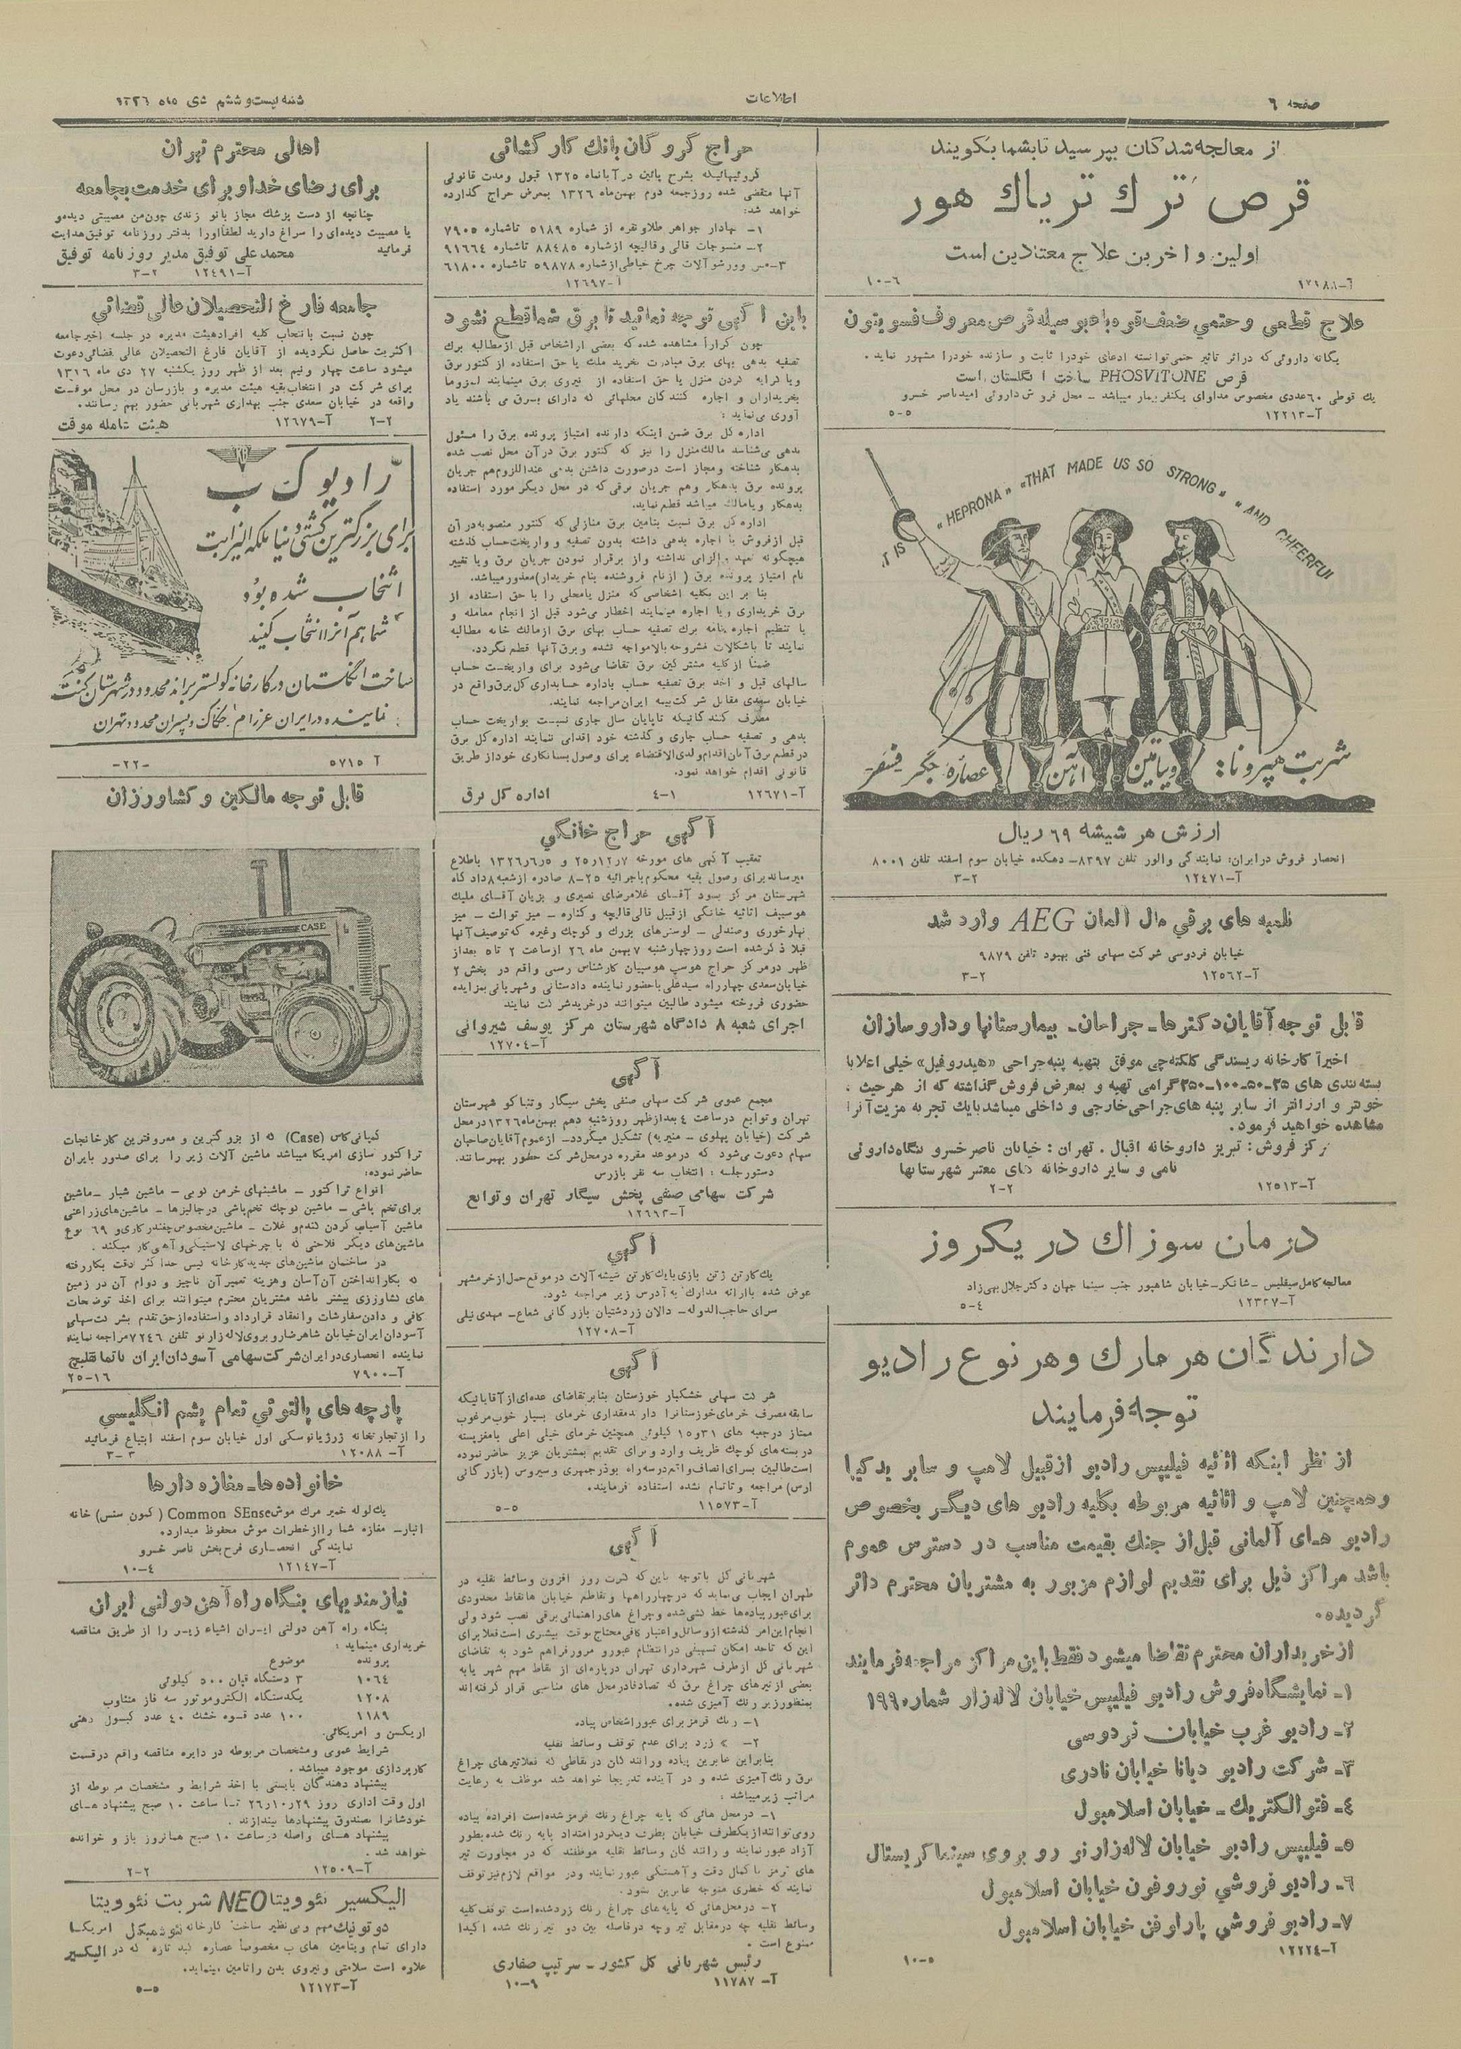 صفحه ۶
اطلاعات
شنبه بیست و ششم دی ماه ۱۳۲۶
از معالجه شدگان بپرسید تا بشما بگویند
قرص ترك تریاك هور
اولین و آخرین علاج معتادین است
۱۰-۶
علاج قطعی و حتمی ضعف قوه باه بوسیله قرص معروف فسویتون
یگانه داروئی که در اثر تاثیر حتمی توانسته ادعای خود را ثابت و سازنده خود را مشهور نماید.
قرص PHOSVITONE ساخت انگلستان است
یك قوطی ۶۰ عددی مخصوص مداوای یکنفر بیمار میباشد - محل فروش داروئی امید ناصر خسرو
آ-۱۲۲۱۳
۵-۵
IT IS "HEPRONA" "THAT MADE US SO STRONG" "AND CHEERFUL
شربت هپرونا: ویتامین آهن عصاره جگر فسفر
ارزش هر شیشه ۶۹ ریال
انحصار فروش در ایران: نمایندگی والور تلفن ۸۳۹۷- دهکده خیابان سوم اسفند تلفن ۸۰۰۱
آ-۱۲۴۷۱
۳-۲
تلمبه های برقی مال آلمان AEG وارد شد
خیابان فردوسی شرکت سهامی فنی بهبود تلفن ۹۸۷۹
آ-۱۲۵۶۲
۳-۲
قابل توجه آقایان دکترها- جراحان- بیمارستانها و داروسازان
اخیراً کارخانه ریسندگی کلکته‌چی موفق بتهیه پنبه جراحی «هیدروفیل» خیلی اعلا با
بسته بندی های ۲۵-۵۰-۱۰۰-۲۵۰ گرامی تهیه و بمعرض فروش گذاشته که از هر حیث
خوبتر و ارزانتر از سایر پنبه های جراحی خارجی و داخلی میباشد با یك تجربه مزیت آنرا
مشاهده خواهید فرمود.
مرکز فروش: تبریز داروخانه اقبال. تهران: خیابان ناصر خسرو بنگاه داروئی
نامی و سایر داروخانه های معتبر شهرستانها
آ-۱۲۵۱۳
۲-۲
درمان سوزاك در یکروز
معالجه کامل سیفلیس - شانکر- خیابان شاهپور جنب سینما جهان دکتر جلال بهی‌زاد
آ-۱۲۳۲۷
۵-۴
دارندگان هر مارك و هر نوع رادیو
توجه فرمایند
از نظر اینکه اثاثیه فیلیپس رادیو از قبیل لامپ و سایر یدکیها
و همچنین لامپ و اثاثیه مربوطه بکلیه رادیو های دیگر بخصوص
رادیو های آلمانی قبل از جنگ بقیمت مناسب در دسترس عموم
باشد مراکز ذیل برای تقدیم لوازم مزبور به مشتریان محترم دائر
گردیده.
از خریداران محترم تقاضا میشود فقط باین مراکز مراجعه فرمایند
۱- نمایشگاه فروش رادیو فیلیپس خیابان لاله‌زار شماره ۱۹۹
۲- رادیو غرب خیابان فردوسی
۳- شرکت رادیو دیانا خیابان نادری
۴- فتوالکتریك - خیابان اسلامبول
۵- فیلیپس رادیو خیابان لاله‌زار نو روبروی سینما کریستال
۶- رادیو فروشی نوروفون خیابان اسلامبول
۷- رادیو فروشی پارلوفن خیابان اسلامبول
آ-۱۲۲۲۴
۱۰-۵
حراج گروگان بانك کارگشائی
گروئیهائیکه بشرح پائین در آبانماه ۱۳۲۵ قبول و مدت قانونی
آنها منقضی شده روز جمعه دوم بهمن ماه ۱۳۲۶ بمعرض حراج گذارده
خواهد شد:
۱- بهادار جواهر طلا و نقره از شماره ۵۱۸۹ تا شماره ۷۹۰۵
۲- منسوجات قالی و قالیچه از شماره ۸۸۴۸۵ تا شماره ۹۱۶۶۴
۳- مس و ورشو آلات چرخ خیاطی از شماره ۵۹۸۷۸ تا شماره ۶۱۸۰۰
آ-۱۲۶۹۷
باین آگهی توجه نمائید تا برق شما قطع نشود
چون کراراً مشاهده شده که بعضی از اشخاص قبل از مطالبه برگ
تصفیه بدهی بهای برق مبادرت بخرید ملك یا حق استفاده از کنتور برق
و یا کرایه کردن منزل یا حق استفاده از نیروی برق مینمایند لزوما
بخریداران و اجاره کنندگان محلهائی که دارای برق می باشند یاد
آوری می‌نماید:
اداره کل برق ضمن اینکه دارنده امتیاز پرونده برق را مسئول
بدهی می‌شناسد مالك منزل را نیز که کنتور برق در آن محل نصب شده
بدهکار شناخته و مجاز است در صورت داشتن بدهی عنداللزوم هم جریان
پرونده برق بدهکار و هم جریان برقی که در محل دیگر مورد استفاده
بدهکار و یا مالك میباشد قطع نماید.
اداره کل برق نسبت بتامین برق منازلی که کنتور منصوبه در آن
قبل از فروش یا اجاره بدهی داشته بدون تصفیه و واریخت حساب گذشته
هیچگونه تعهد و الزامی نداشته و از برقرار نمودن جریان برق و یا تغییر
نام امتیاز پرونده برق (از نام فروشنده بنام خریدار) معذور میباشد.
بنا بر این بکلیه اشخاصی که منزل یا محلی را با حق استفاده از
برق خریداری و یا اجاره مینمایند اخطار می‌شود قبل از انجام معامله و
یا تنظیم اجاره نامه برگ تصفیه حساب بهای برق از مالك خانه مطالبه
نمایند تا باشکالات مشروحه بالا مواجه نشده و برق آنها قطع نگردد.
ضمناً از کلیه مشترکین برق تقاضا می‌شود برای واریخت حساب
سالهای قبل و اخذ برق تصفیه حساب باداره حسابداری کل برق واقع در
خیابان سعدی مقابل شرکت بیمه ایران مراجعه نمایند.
مصرف کنندگانیکه تا پایان سال جاری نسبت بواریخت حساب
بدهی و تصفیه حساب جاری و گذشته خود اقدامی ننمایند اداره کل برق
در قطع برق آنان اقدام ولدی الاقتضاء برای وصول بستانکاری خود از طریق
قانونی اقدام خواهد نمود.
آ-۱۲۶۷۱
۴-۱
اداره کل برق
آگهی حراج خانگی
تعقیب آگهی های مورخه ۲۵ر۱۲ر۷ و ۱۳۲۶ر۶ر۵ باطلاع
میرساند برای وصول بقیه محکوم به اجرائیه ۲۵-۸ صادره از شعبه ۸ دادگاه
شهرستان مرکز بسود آقای غلامرضای نصیری و بزیان آقای ملیك
هوسپیف اثاثیه خانگی از قبیل قالی قالیچه و کناره - میز توالت - میز
نهارخوری و صندلی - لوسترهای بزرگ و کوچك وغیره که توصیف آنها
قبلا ذکر شده است روز چهارشنبه ۷ بهمن ماه ۲۶ از ساعت ۲ تا ۵ بعد از
ظهر در مرکز حراج هوسپ هوسپیان کارشناس رسمی واقع در بخش ۲
خیابان سعدی چهارراه سیدعلی با حضور نماینده دادستانی و شهربانی بمزایده
حضوری فروخته میشود طالبین میتوانند در خرید شرکت نمایند
اجرای شعبه ۸ دادگاه شهرستان مرکز یوسف شیروانی
آ-۱۲۷۰۴
آگهی
مجمع عمومی شرکت سهامی صنفی پخش سیگار و تنباکو شهرستان
تهران و توابع در ساعت ۴ بعد از ظهر روز شنبه دهم بهمن ماه ۱۳۲۶ در محل
شرکت (خیابان پهلوی - منیریه) تشکیل میگردد- از عموم آقایان صاحبان
سهام دعوت می‌شود که در موعد مقرره در محل شرکت حضور بهم رسانند.
دستور جلسه: انتخاب سه نفر بازرس
شرکت سهامی صنفی پخش سیگار تهران و توابع
آ-۱۲۶۶۳
آگهی
یك کارتن ژتن بازی با یك کارتن شیشه آلات در موقع حمل از خرمشهر
عوض شده با ارائه مدارك به آدرس زیر مراجعه شود.
سرای حاجب الدوله- دالان زردشتیان بازرگانی شعاع- مهدی نیلی
آ-۱۲۷۰۸
آگهی
شرکت سهامی خشکبار خوزستان بنابر تقاضای عده‌ای از آقایانیکه
سابقه مصرف خرمای خوزستان را دارند مقداری خرمای بسیار خوب مرغوب
ممتاز در جعبه های ۳۱ و ۱۵ کیلوئی همچنین خرمای خیلی اعلی با مغز پسته
در بسته‌های کوچك ظریف وارد و برای تقدیم بمشتریان عزیز حاضر نموده
است طالبین بسرای انصاف واقع در سه راه بوذرجمهری و سیروس (بازرگانی
ارس) مراجعه و تا تمام نشده استفاده فرمایند.
آ-۱۱۵۷۳
۵-۵
آگهی
شهربانی کل با توجه باین که کثرت روز افزون وسائط نقلیه در
طهران ایجاب می‌نماید که در چهارراهها و تقاطع خیابان ها نقاط محدودی
برای عبور پیاده‌ها خط کشی شده و چراغ های راهنمائی برقی نصب شود ولی
انجام این امر گذشته از وسائل و اعتبار کافی محتاج بوقت بیشتری است فعلا برای
این که تا حد امکان تسهیلی در انتظام عبور و مرور فراهم شود به تقاضای
شهربانی کل از طرف شهرداری تهران در پاره‌ای از نقاط مهم شهر پایه
بعضی از تیرهای چراغ برق که تصادفاً در محل های مناسبی قرار گرفته‌اند
بمنظور زیر رنگ آمیزی شده.
۱- رنگ قرمز برای عبور اشخاص پیاده
۲- » زرد برای عدم توقف وسائط نقلیه
بنابراین عابرین پیاده و رانندگان در نقاطی که فعلا تیرهای چراغ
برق رنگ آمیزی شده و در آینده تدریجا خواهد شد موظف به رعایت
مراتب زیر میباشند:
۱- در محل هائی که پایه چراغ رنگ قرمز شده است افراد پیاده
روی توانند از یکطرف خیابان بطرف دیگر در امتداد پایه رنگ شده بطور
آزاد عبور نمایند و رانندگان وسائط نقلیه موظفند که در مجاورت تیر
های قرمز با کمال دقت و آهستگی عبور نمایند و در مواقع لازم نیز توقف
نمایند که خطری متوجه عابرین نشود.
۲- در محل‌هائی که پایه‌های چراغ رنگ زرد شده است توقف کلیه
وسائط نقلیه چه در مقابل تیر و چه در فاصله بین دو تیر رنگ شده اکیداً
ممنوع است.
رئیس شهربانی کل کشور - سرتیپ صفاری
آ- ۱۱۷۸۷
۱۰-۹
اهالی محترم تهران
برای رضای خدا و برای خدمت بجامعه
چنانچه از دست پزشك مجاز بانو زندی چون من مصیبتی دیده‌و
یا مصیبت دیده‌ای را سراغ دارید لطفاً او را بدفتر روزنامه توفیق هدایت
فرمائید
محمدعلی توفیق مدیر روزنامه توفیق
آ-۱۲۴۹۱
۳-۲
جامعه فارغ التحصیلان عالی قضائی
چون نسبت بانتخاب کلیه افراد هیئت مدیره در جلسه اخیر جامعه
اکثریت حاصل نگردیده از آقایان فارغ التحصیلان عالی قضائی دعوت
میشود ساعت چهار و نیم بعد از ظهر روز یکشنبه ۲۷ دی ماه ۱۳۲۶
برای شرکت در انتخاب بقیه هیئت مدیره و بازرسان در محل موقت
واقعه در خیابان سعدی جنب بهداری شهربانی حضور بهم رسانند.
۲-۲
آ-۱۲۶۷۹
هیئت عامله موقت
KB
رادیو ک ب
برای بزرگترین کشتی دنیا ملکه الیزابت
انتخاب شده بود
شما هم آنرا انتخاب کنید
ساخت انگلستان در کارخانه کولستر براند محدود در شهرستان کنت
نماینده در ایران عزرا م. حکاک و پسران محدود تهران
آ ۵۷۱۵
-۲۲-
قابل توجه مالکین و کشاورزان
CASE
کمپانی کاس (Case) که از بزرگترین و معروفترین کارخانجات
تراکتور سازی امریکا میباشد ماشین آلات زیر را برای صدور بایران
حاضر نموده:
انواع تراکتور - ماشینهای خرمن کوبی - ماشین شیار - ماشین
برای تخم پاشی - ماشین کوچك تخم‌پاشی در جالیزها - ماشین‌های زراعتی
ماشین آسیاب کردن گندم و غلات - ماشین مخصوص چغندرکاری و ۶۹ نوع
ماشین‌های دیگر فلاحتی که با چرخهای لاستیکی و آهنی کار میکند.
در ساختمان ماشین‌های جدید کارخانه کیس حداکثر دقت بکار رفته
که بکار انداختن آن آسان و هزینه تعمیر آن ناچیز و دوام آن در زمین
های کشاورزی بیشتر باشد مشتریان محترم میتوانند برای اخذ توضیحات
کافی و دادن سفارشات و انعقاد قرارداد و استفاده از حق تقدم بشرکت سهامی
آسودان ایران خیابان شاهرضا روبروی لاله زار نو تلفن ۷۲۴۶ مراجعه نمایند
نماینده انحصاری در ایران شرکت سهامی آسودان ایران ناتما نقلیچ
آ-۷۹۰۰
۲۵-۱۶
پارچه های پالتوئی تمام پشم انگلیسی
را از تجارتخانه ژرژیانوسکی اول خیابان سوم اسفند ابتیاع فرمائید
آ- ۱۲۰۸۸
۳-۳
خانواده ها- مغازه دارها
یك لوله خمیر مرگ موش Common SEnse (کمون سنس) خانه
انبار- مغازه شما را از خطرات موش محفوظ میدارد.
نمایندگی انحصاری فرح‌بخش ناصر خسرو
آ-۱۲۱۴۷
۱۰-۴
نیازمندیهای بنگاه راه آهن دولتی ایران
بنگاه راه آهن دولتی ایران اشیاء زیر را از طریق مناقصه
خریداری مینماید:
پرونده موضوع
۱۰۶۴ ۳ دستگاه قپان ۵۰۰ کیلوئی
۱۲۰۸ یکدستگاه الکتروموتور سه فاز متناوب
۱۱۸۹ ۱۰۰ عدد قوه خشك ۴۰ عدد کپسول دهنی
اریکسن و امریکائی.
شرایط عمومی و مشخصات مربوطه در دایره مناقصه واقع در قسمت
کارپردازی موجود میباشد.
پیشنهاد دهندگان بایستی با اخذ شرایط و مشخصات مربوطه از
اول وقت اداری روز ۲۹ر۱۰ر۲۶ تا ساعت ۱۰ صبح پیشنهاد های
خود را بصندوق پیشنهادها بیندازند.
پیشنهاد های واصله در ساعت ۱۰ صبح همانروز باز و خوانده
خواهد شد.
آ-۱۲۵۰۹
۲-۲
الیکسیر نئوویتا NEO شربت نئوویتا
دو تونیك مهم و بی‌نظیر ساخت کارخانه نئومدیکل امریکا
دارای تمام ویتامین های ب مخصوصاً عصاره کبد تازه که در الیکسیر
علاوه است سلامتی و نیروی بدن را تامین مینماید.
آ-۱۲۱۷۳
۵-۵